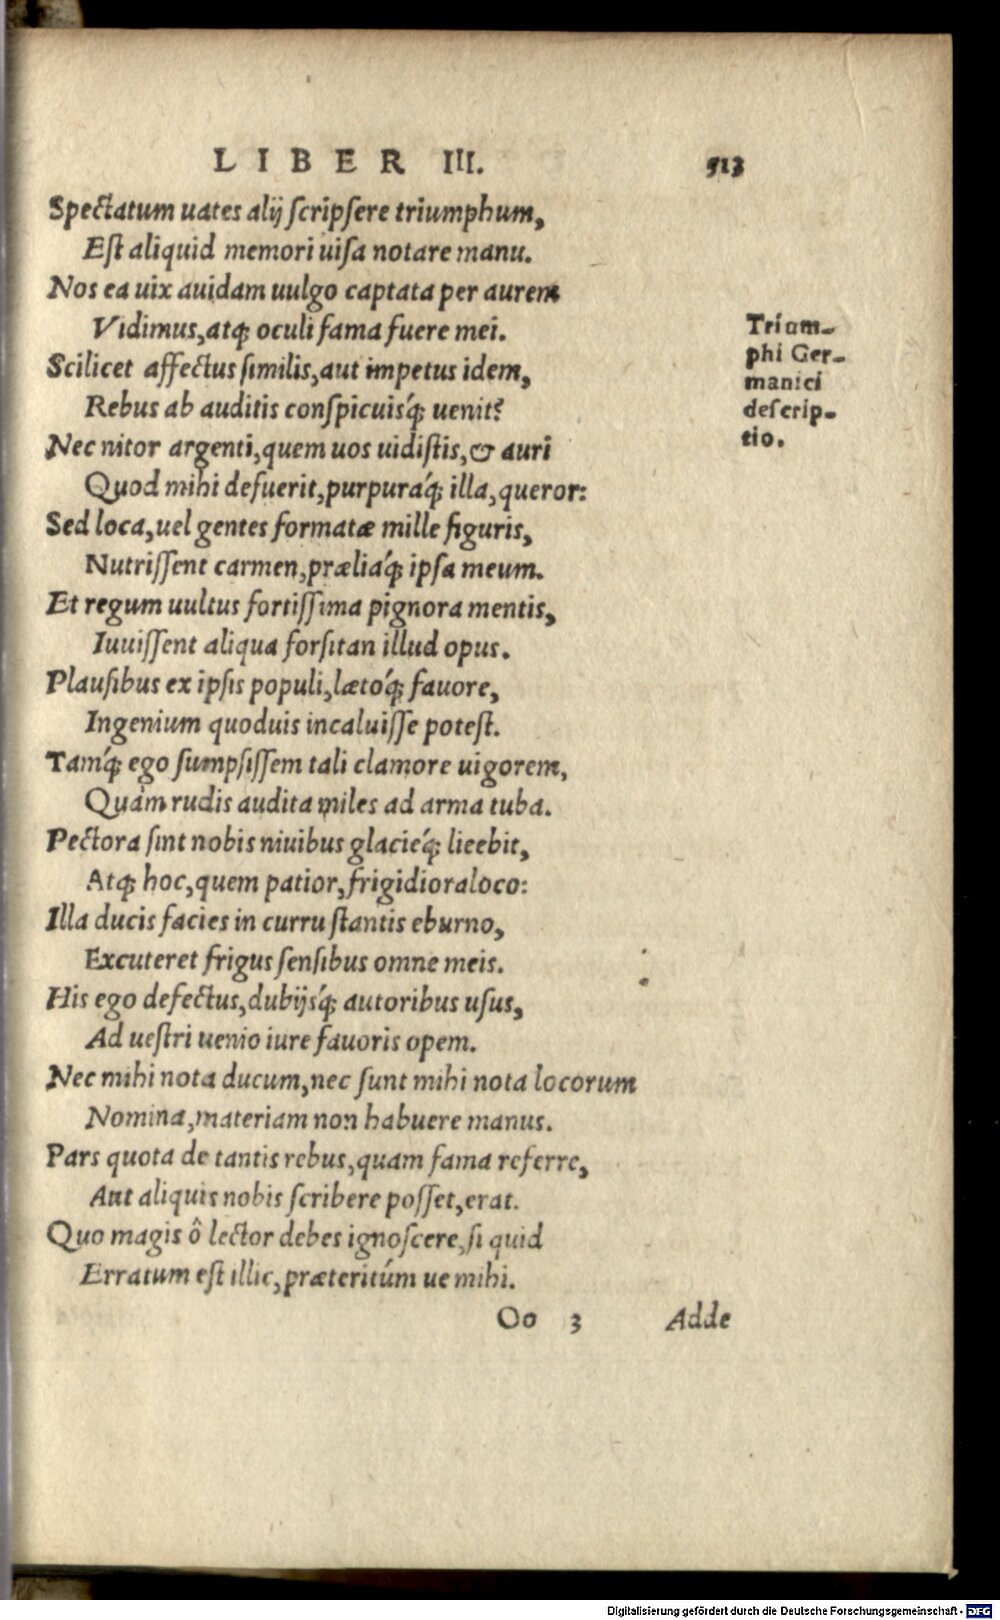 LIBER III. 513
Spectatum uates alij scripsere triumphum,
Est aliquid memori uisa notare manu.
Nos ea uix auidam uulgo captata per aurem
Vidimus, atq; oculi fama fuere mei.
Scilicet affectus similis, aut impetus idem,
Rebus ab auditis conspicuisq́; uenit?
Nec nitor argenti, quem uos uidistis, & auri
Quod mihi defuerit, purpuraq́; illa, queror:
Sed loca, uel gentes formatæ mille figuris,
Nutrissent carmen, præliaq́; ipsa meum.
Et regum uultus fortissima pignora mentis,
Iuuissent aliqua forsitan illud opus.
Plausibus ex ipsis populi, lætoq́; fauore,
Ingenium quoduis incaluisse potest.
Tamq́; ego sumpsissem tali clamore uigorem,
Quàm rudis audita miles ad arma tuba.
Pectora sint nobis niuibus glacieq́; licebit,
Atq; hoc, quem patior, frigidiora loco:
Illa ducis facies in curru stantis eburno,
Excuteret frigus sensibus omne meis.
His ego defectus, dubijsq́; autoribus usus,
Ad uestri uenio iure fauoris opem.
Nec mihi nota ducum, nec sunt mihi nota locorum
Nomina, materiam non habuere manus.
Pars quota de tantis rebus, quam fama referre,
Aut aliquis nobis scribere posset, erat.
Quo magis ô lector debes ignoscere, si quid
Erratum est illic, præteritúm ue mihi.
Oo 3 Adde
Trium-
phi Ger-
manici
descrip-
tio.
Digitalisierung gefördert durch die Deutsche Forschungsgemeinschaft - DFG